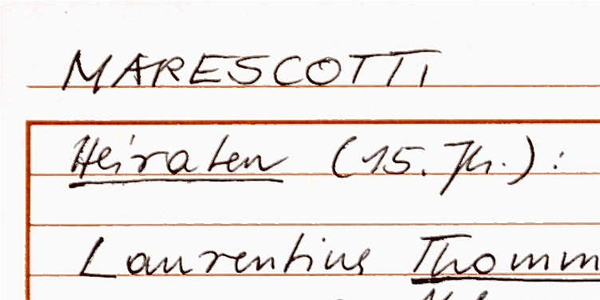 MARESCOTTI
Heiraten (15. Jh.):
Laurentius Thomm